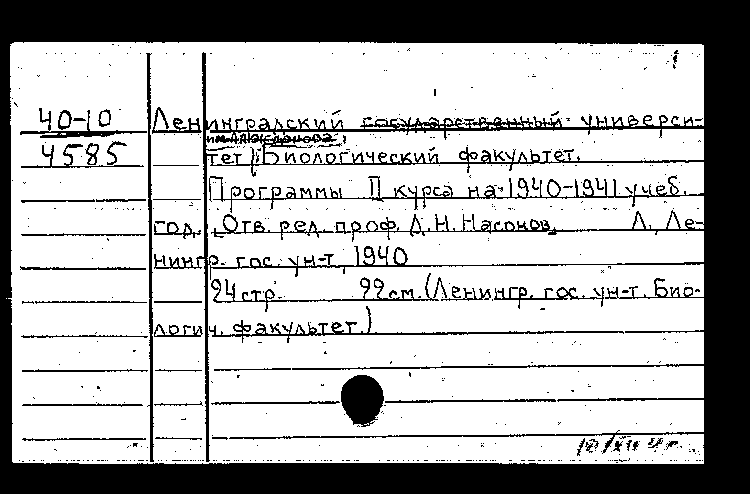 1
40-10 Ленинградский государственный универси-
им. А.А. Жданова,
4585 тет. Биологический факультет.
Программы II курса на 1940-1941 учеб.
год. Отв. ред. проф. Д. Н. Насонов. Л., Ле-
нингр. гос. ун-т, 1940
24 стр. 22 см. (Ленингр. гос. ун-т. Био-
логич. факультет.)